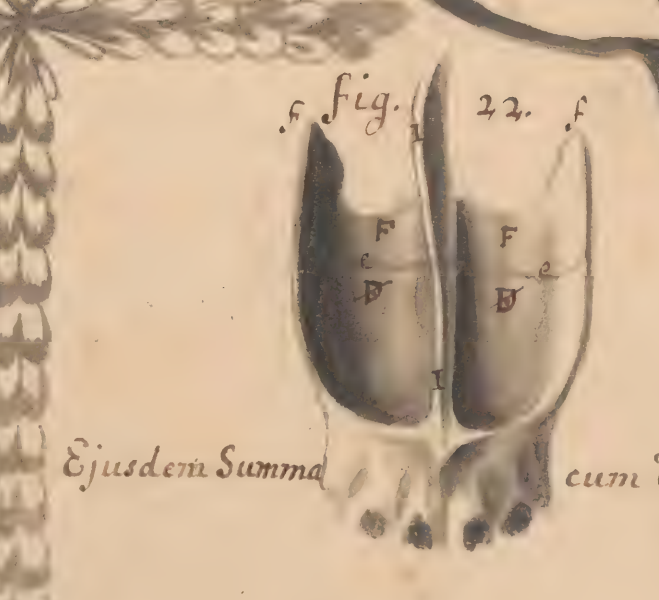 f fig. 22. f
I
F F
e e
D D
I
Ejusdem Summa cum